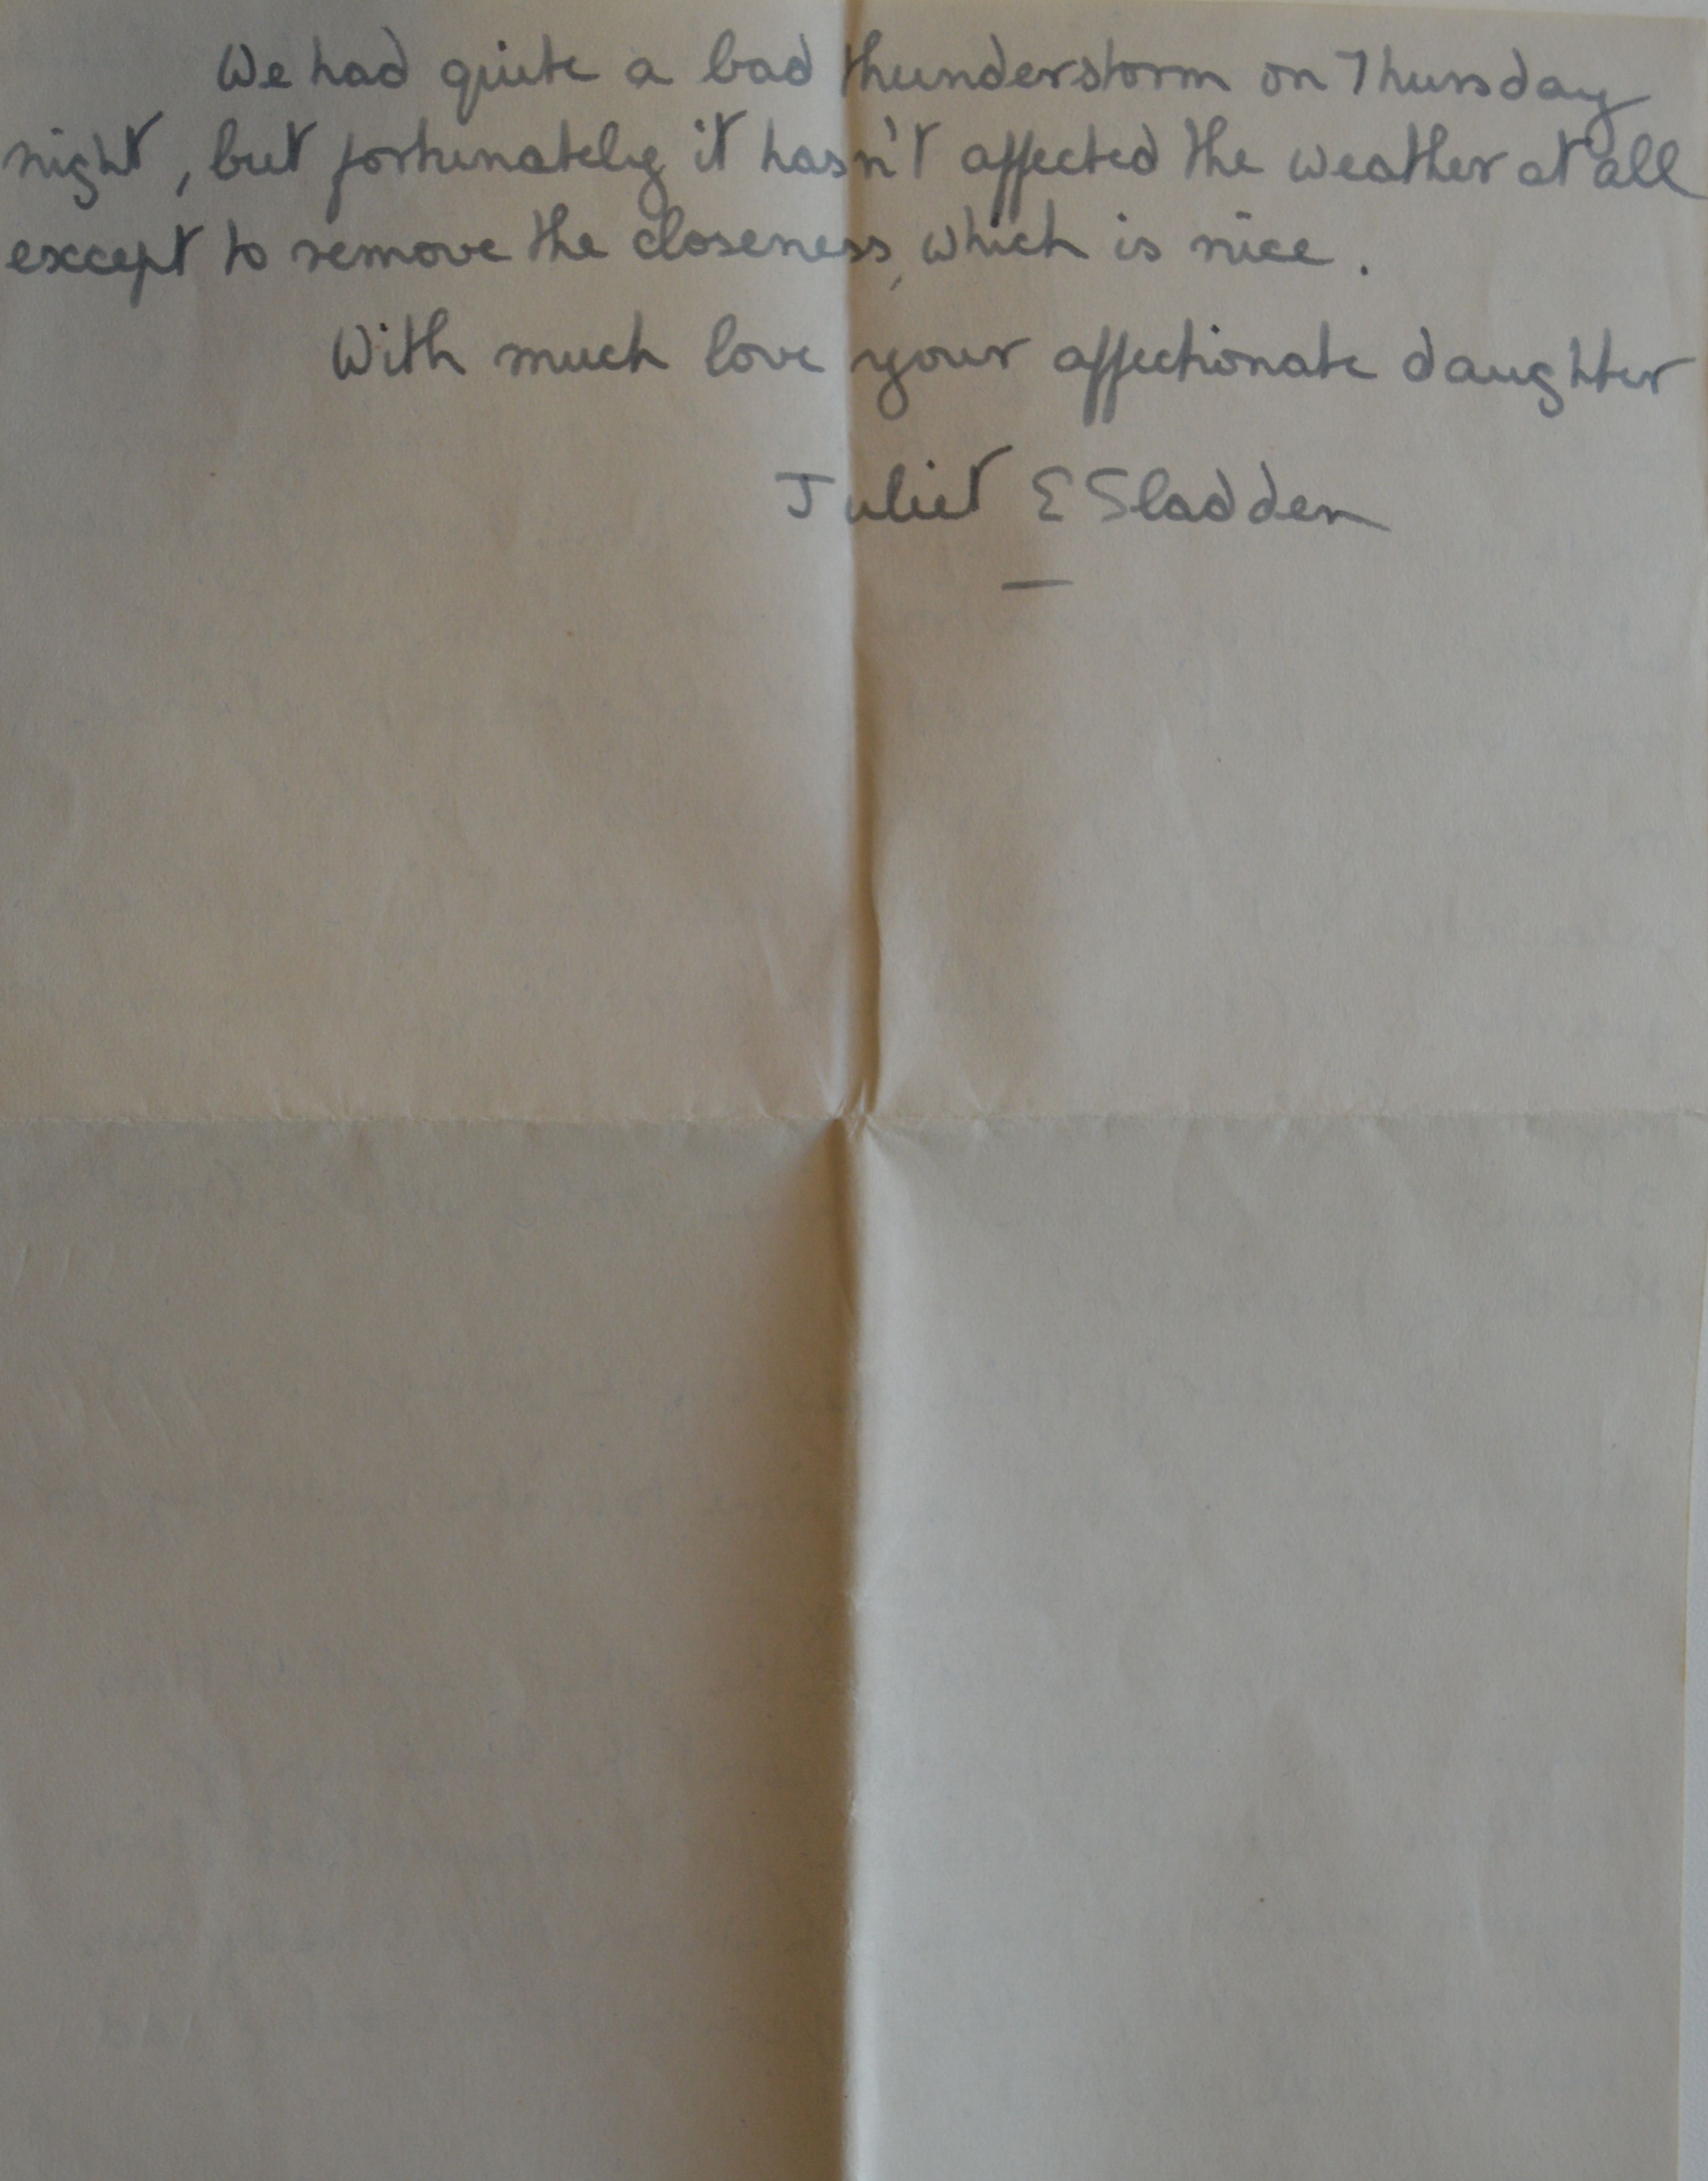 We had quite a bad thunderstorm on Thursday
night, but fortunately it hasn't affected the weather at all
except to remove the closeness, which is nice.
With much love your affectionate daughter
Juliet E Sladden